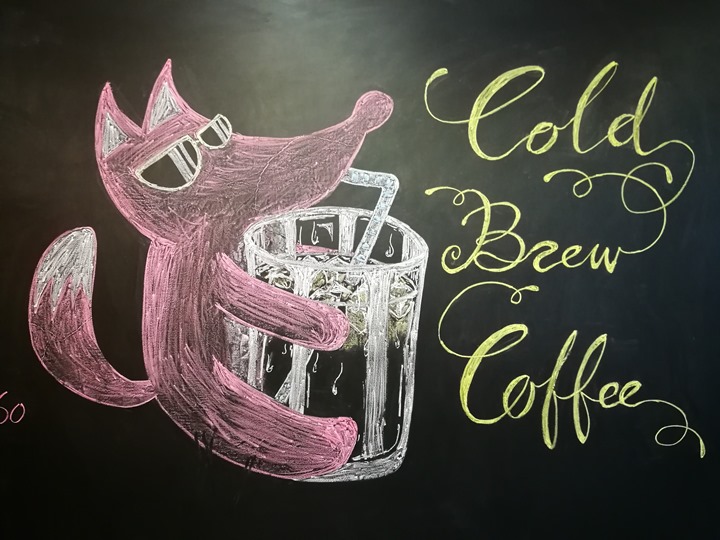 Cold
Brew
Coffee